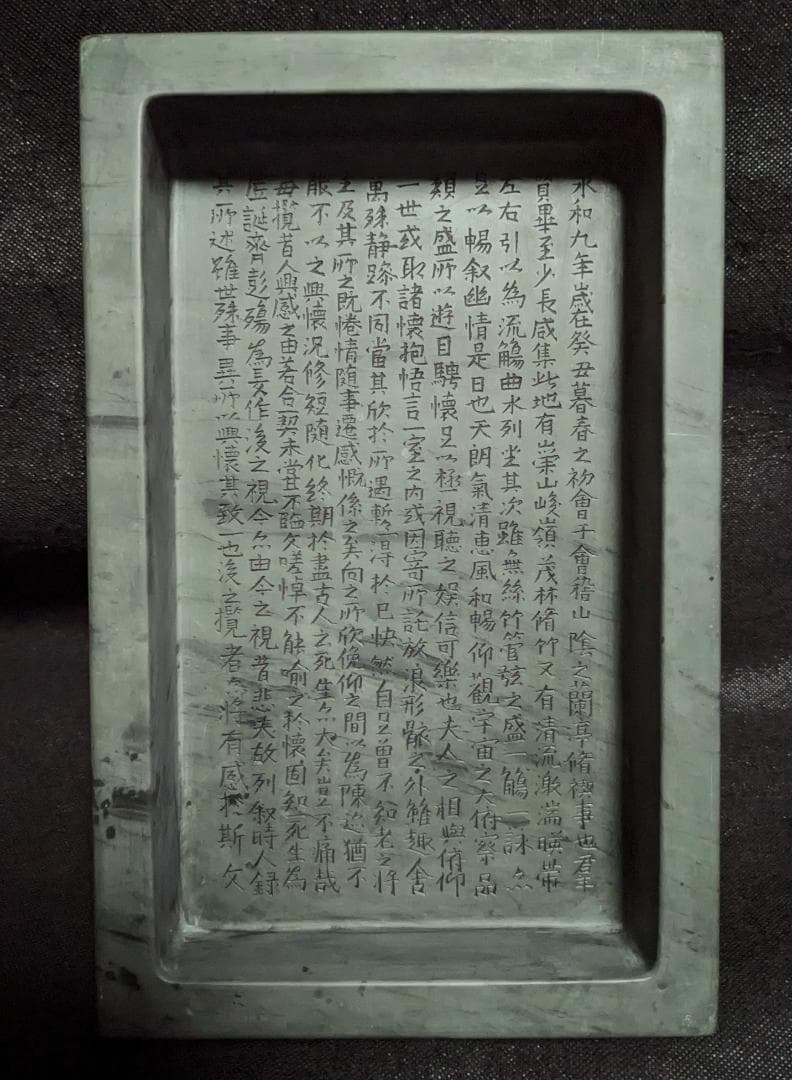 永和九年歲在癸丑暮春之初會于會稽山陰之蘭亭脩禊事也羣
賢畢至少長咸集此地有崇山峻嶺茂林脩竹又有清流激湍暎帶
左右引以為流觴曲水列坐其次雖無絲竹管弦之盛一觴一詠亦
足以暢叙幽情是日也天朗氣清惠風和暢仰觀宇宙之大俯察品
類之盛所以遊目騁懷足以極視聽之娛信可樂也夫人之相與俯仰
一世或取諸懷抱悟言一室之內或因寄所託放浪形骸之外雖趣舍
萬殊靜躁不同當其欣於所遇暫得於己快然自足曾不知老之將
至及其所之既惓情隨事遷感慨係之矣向之所欣俛仰之間以為陳迹猶不
能不以之興懷況修短隨化終期於盡古人云死生亦大矣豈不痛哉
每攬昔人興感之由若合一契未嘗不臨文嗟悼不能喻之於懷固知死生為
虛誕齊彭殤為妄作後之視今亦由今之視昔悲夫故列叙時人錄
其所述雖世殊事異所以興懷其致一也後之攬者亦將有感於斯文